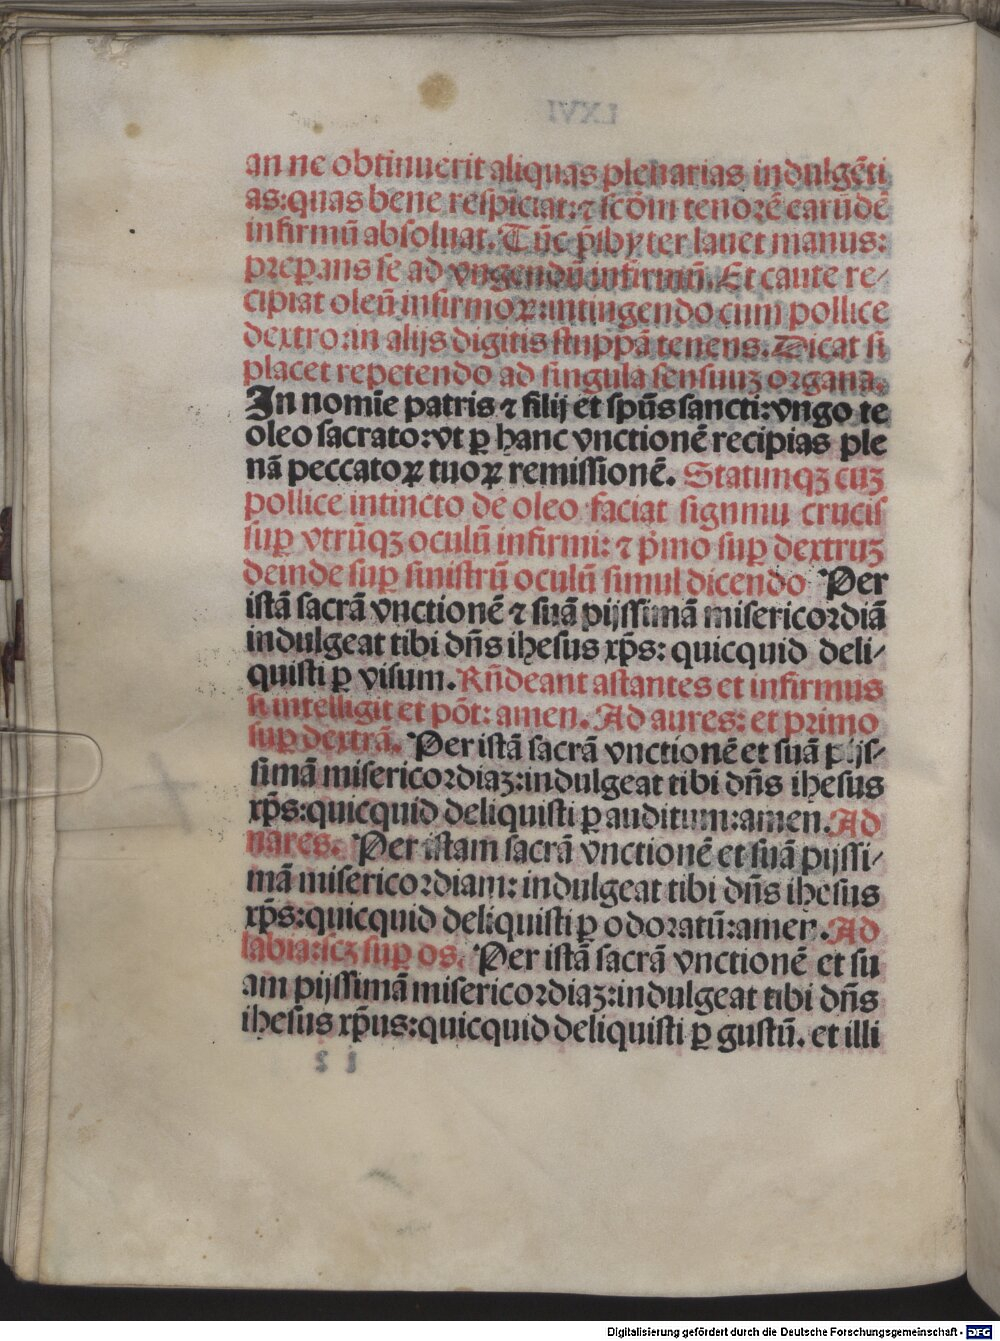 an ne obtinuerit aliquas plenarias indulgẽti
as:quas bene respiciat:⁊ scõm tenorẽ earũdẽ
infirmũ absoluat. Tũc p̃sbyter lauet manus:
prep̱ans se ad vngendũ infirmũ. Et caute re⸗
cipiat oleũ infirmoꝝ:intingendo cum pollice
dextro:in alijs digitis stuppã tenens. Dicat si
placet repetendo ad singula sensuuꝫ organa.
In nomie patris ⁊ filij et spũs sancti:vngo te
oleo sacrato:vt ꝑ hanc vnctionẽ recipias ple
nã peccatoꝝ tuoꝝ remissionẽ. Statimqꝫ cuꝫ
pollice intincto de oleo faciat signmu crucis
suꝑ vtrũqꝫ oculũ infirmi: ⁊ p̃mo suꝑ dextruꝫ
deinde suꝑ sinistrũ oculũ simul dicendo Per
istã sacrã vnctionẽ ⁊ suã pijssimã misericordiã
indulgeat tibi dñs ihesus xp̃s: quicquid deli⸗
quisti ꝑ visum. Rñdeant astantes et infirmus
si intelligit et põt: amen. Ad aures: et primo
suꝑ dextrã. Per istã sacrã vnctionẽ et suã pijs⸗
simã misericordiaꝫ:indulgeat tibi dñs ihesus
xp̃s:quicquid deliquisti ꝑ auditum:amen. Ad
nares. Per istam sacrã vnctionẽ et suã pijssi⸗
mã misericordiam: indulgeat tibi dñs ihesus
xp̃s:quicquid deliquisti ꝑ odoratũ:amen. Ad
labia:scꝫ suꝑ os. Per istã sacrã vnctionẽ et su
am pijssimã misericordiaꝫ:indulgeat tibi dñs
ihesus xp̃us:quicquid deliquisti ꝑ gustũ. et illi
Digitalisierung gefördert durch die Deutsche Forschungsgemeinschaft - DFG